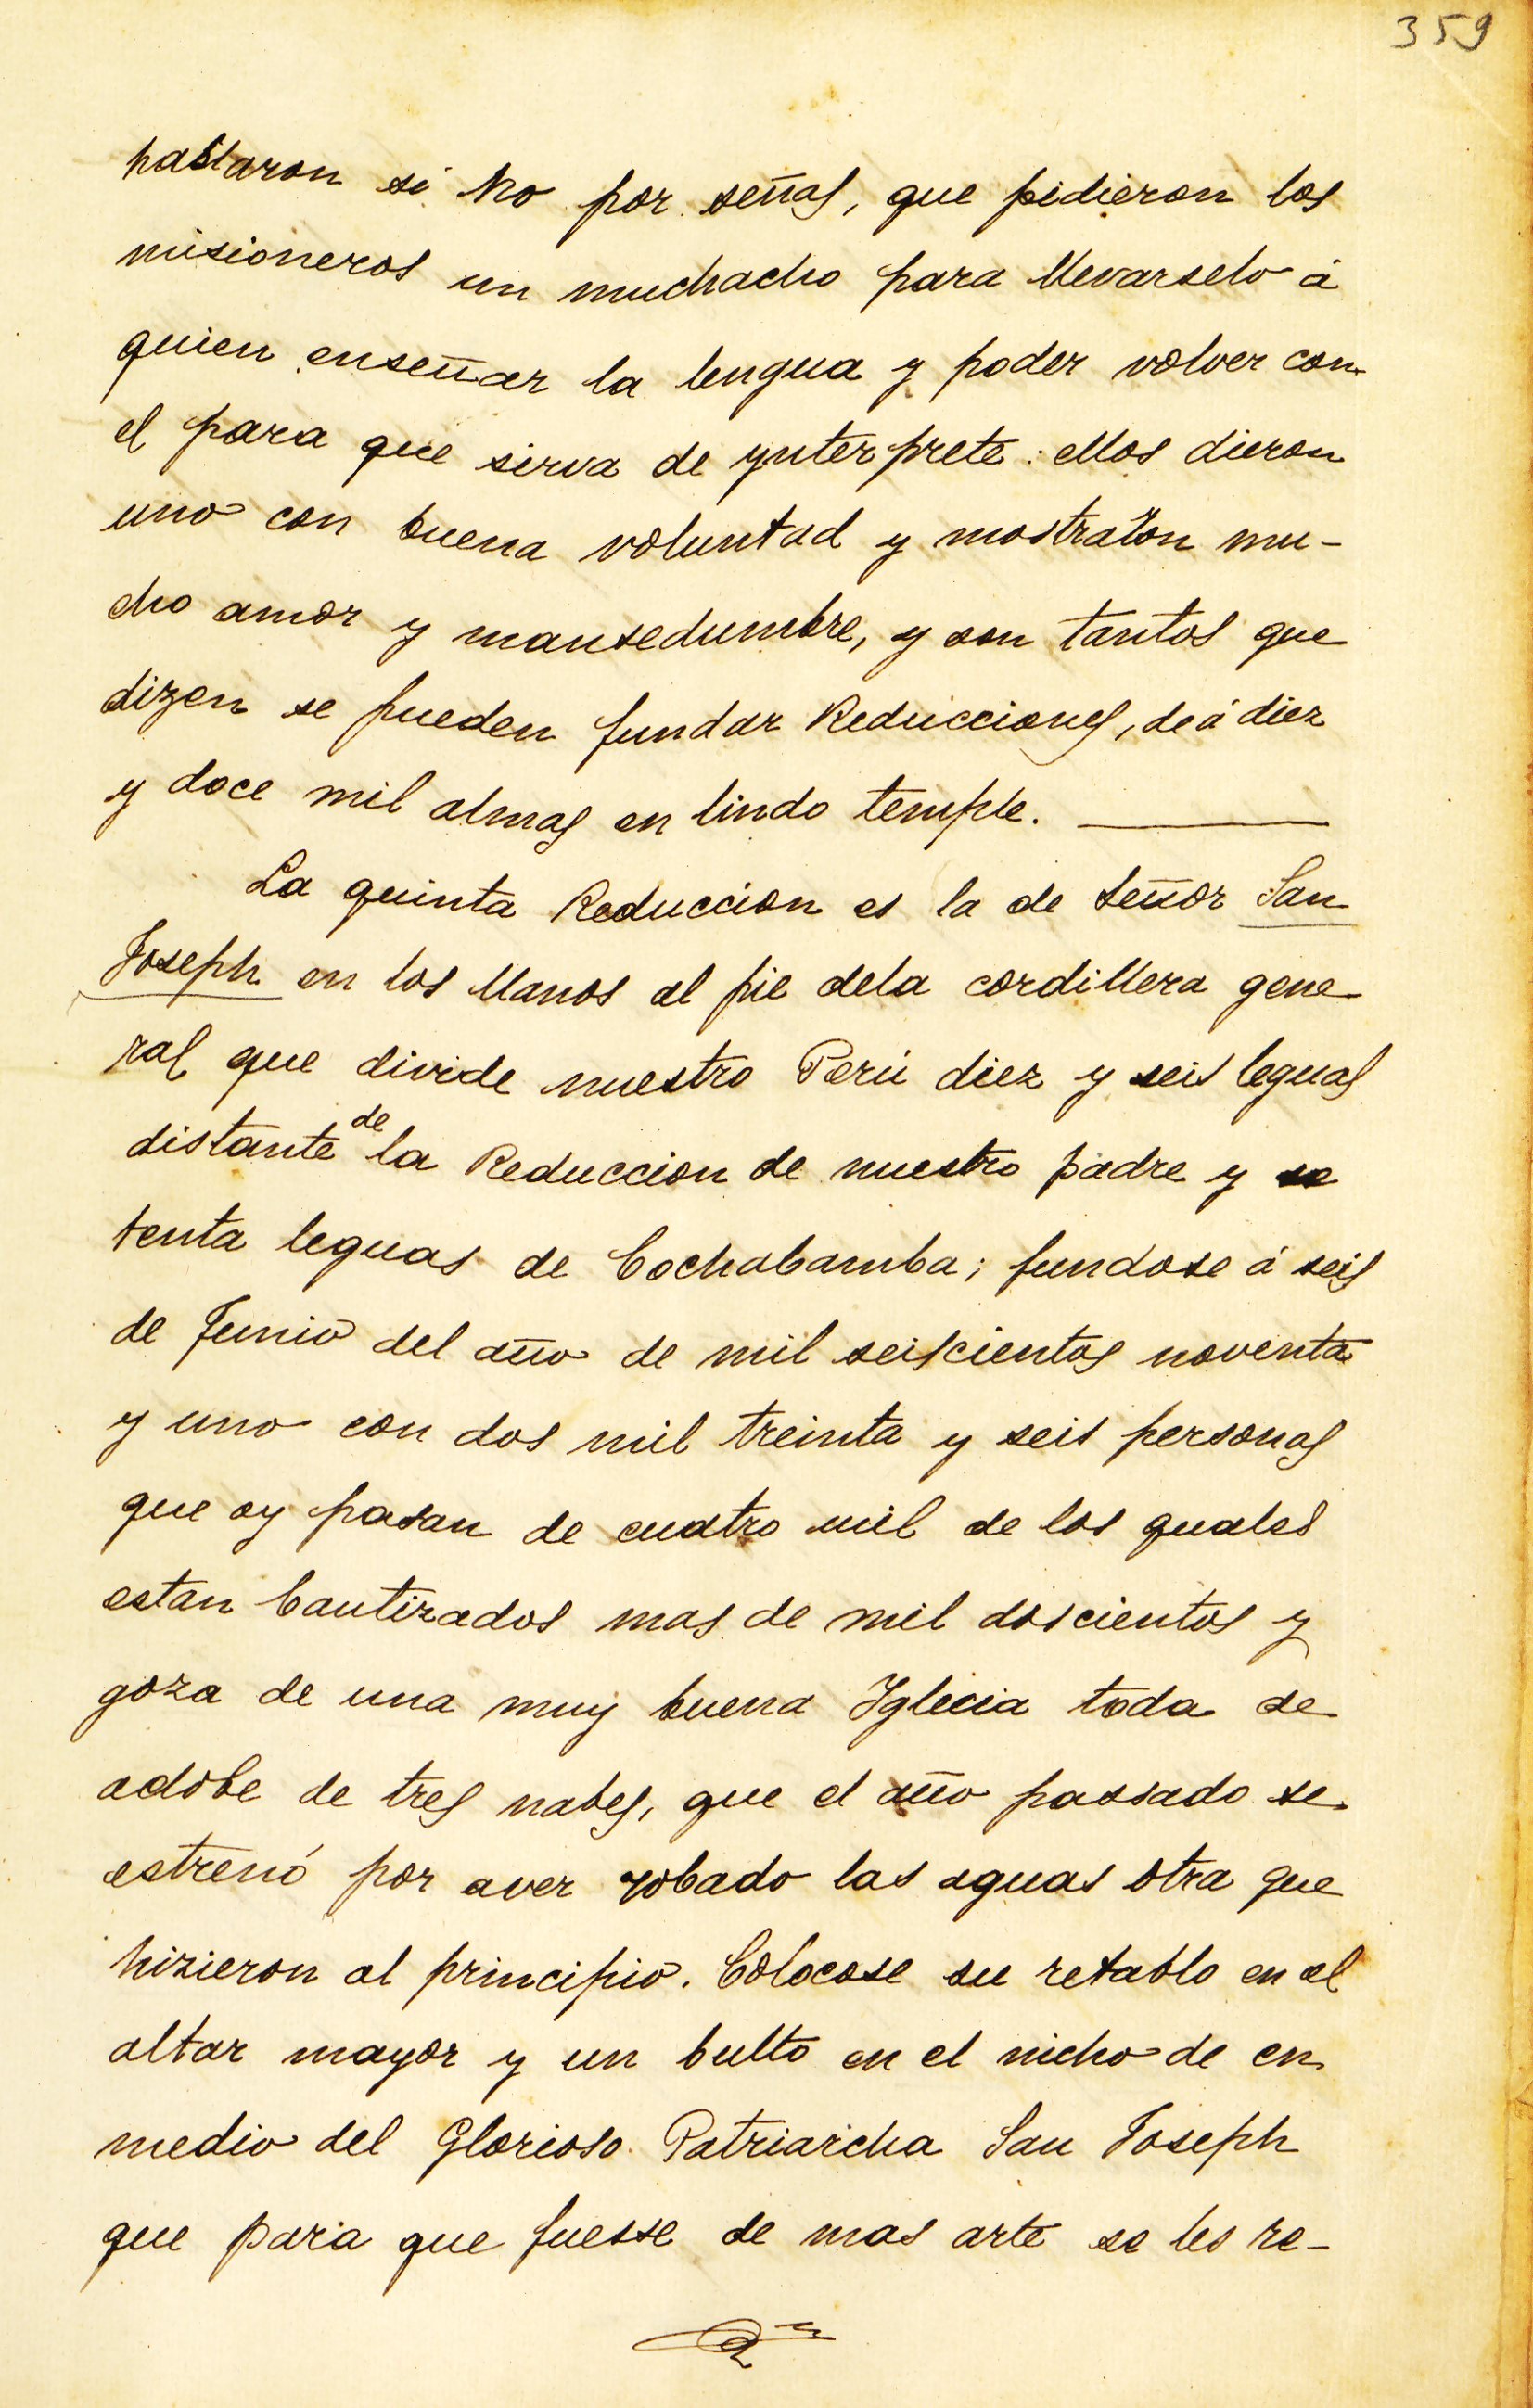 359
hablaron si no por señas, que pidieron los
misioneros un muchacho para llevarselo á
quien enseñar la lengua y poder volver con
el para que sirva de ynterprete: ellos dieron
uno con buena voluntad y mostraron mu-
cho amor y mansedumbre, y son tantos que
dizen se pueden fundar Reducciones, de á diez
y doce mil almas en lindo temple.
La quinta Reduccion es la de señor San
Joseph en los llanos al pie dela cordillera gene
ral que divide nuestro Perú diez y seis leguas
distante de la Reduccion de nuestro padre y se
tenta leguas de Cochabamba; fundose á seis
de Junio del año de mil seiscientos noventa
y uno con dos mil treinta y seis personas
que oy pasan de cuatro mil de los quales
estan bautizados mas de mil doscientos y
goza de una muy buena Iglecia toda de
adobe de tres nabes, que el año passado se
estrenó por aver robado las aguas otra que
hizieron al principio. Colocose su retablo en el
altar mayor y un bulto en el nicho de en
medio del Glorioso Patriarcha San Joseph
que para que fuesse de mas arte se les re-